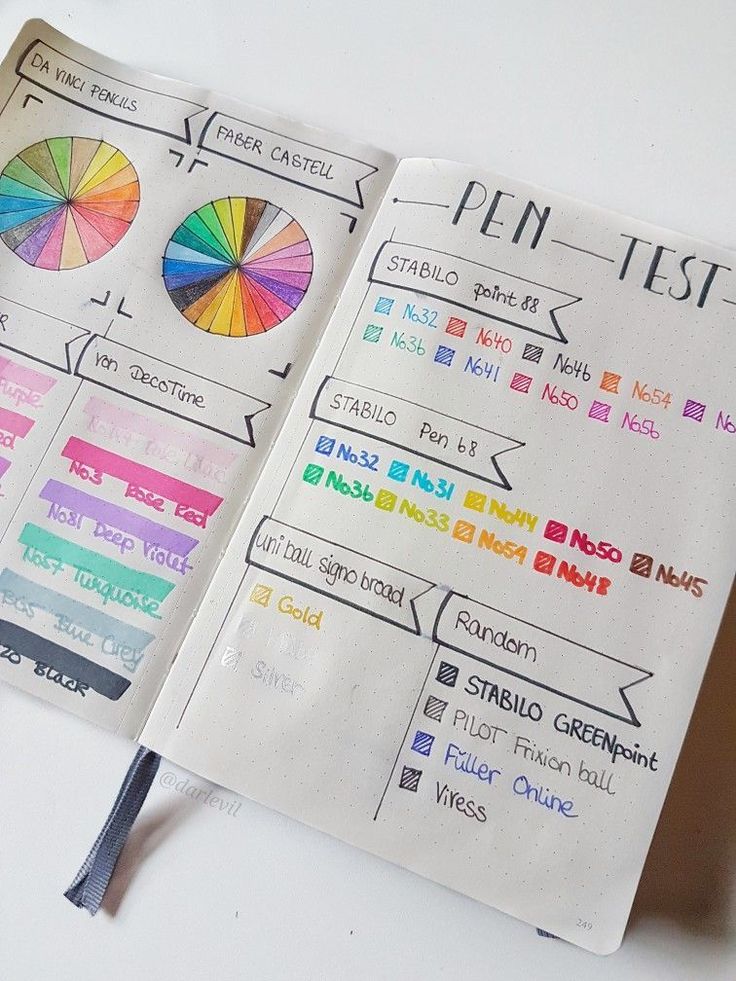 DA VINCI PENCILS
FABER CASTELL
von DECOTIME
No3 Rose Red
No81 Deep Violet
No57 Turquoise
BG5 Blue Grey
20 Black
PEN TEST
STABILO point 88
No32 No40 No46 No54 No
No36 No41 No50 No56
STABILO Pen 68
No32 No31 No44 No50 No45
No36 No33 No54 No48
uni ball signo broad
Gold
Silver
Random
STABILO GREENpoint
PILOT Frixion ball
Füller Online
Vivess
@darlevil
249